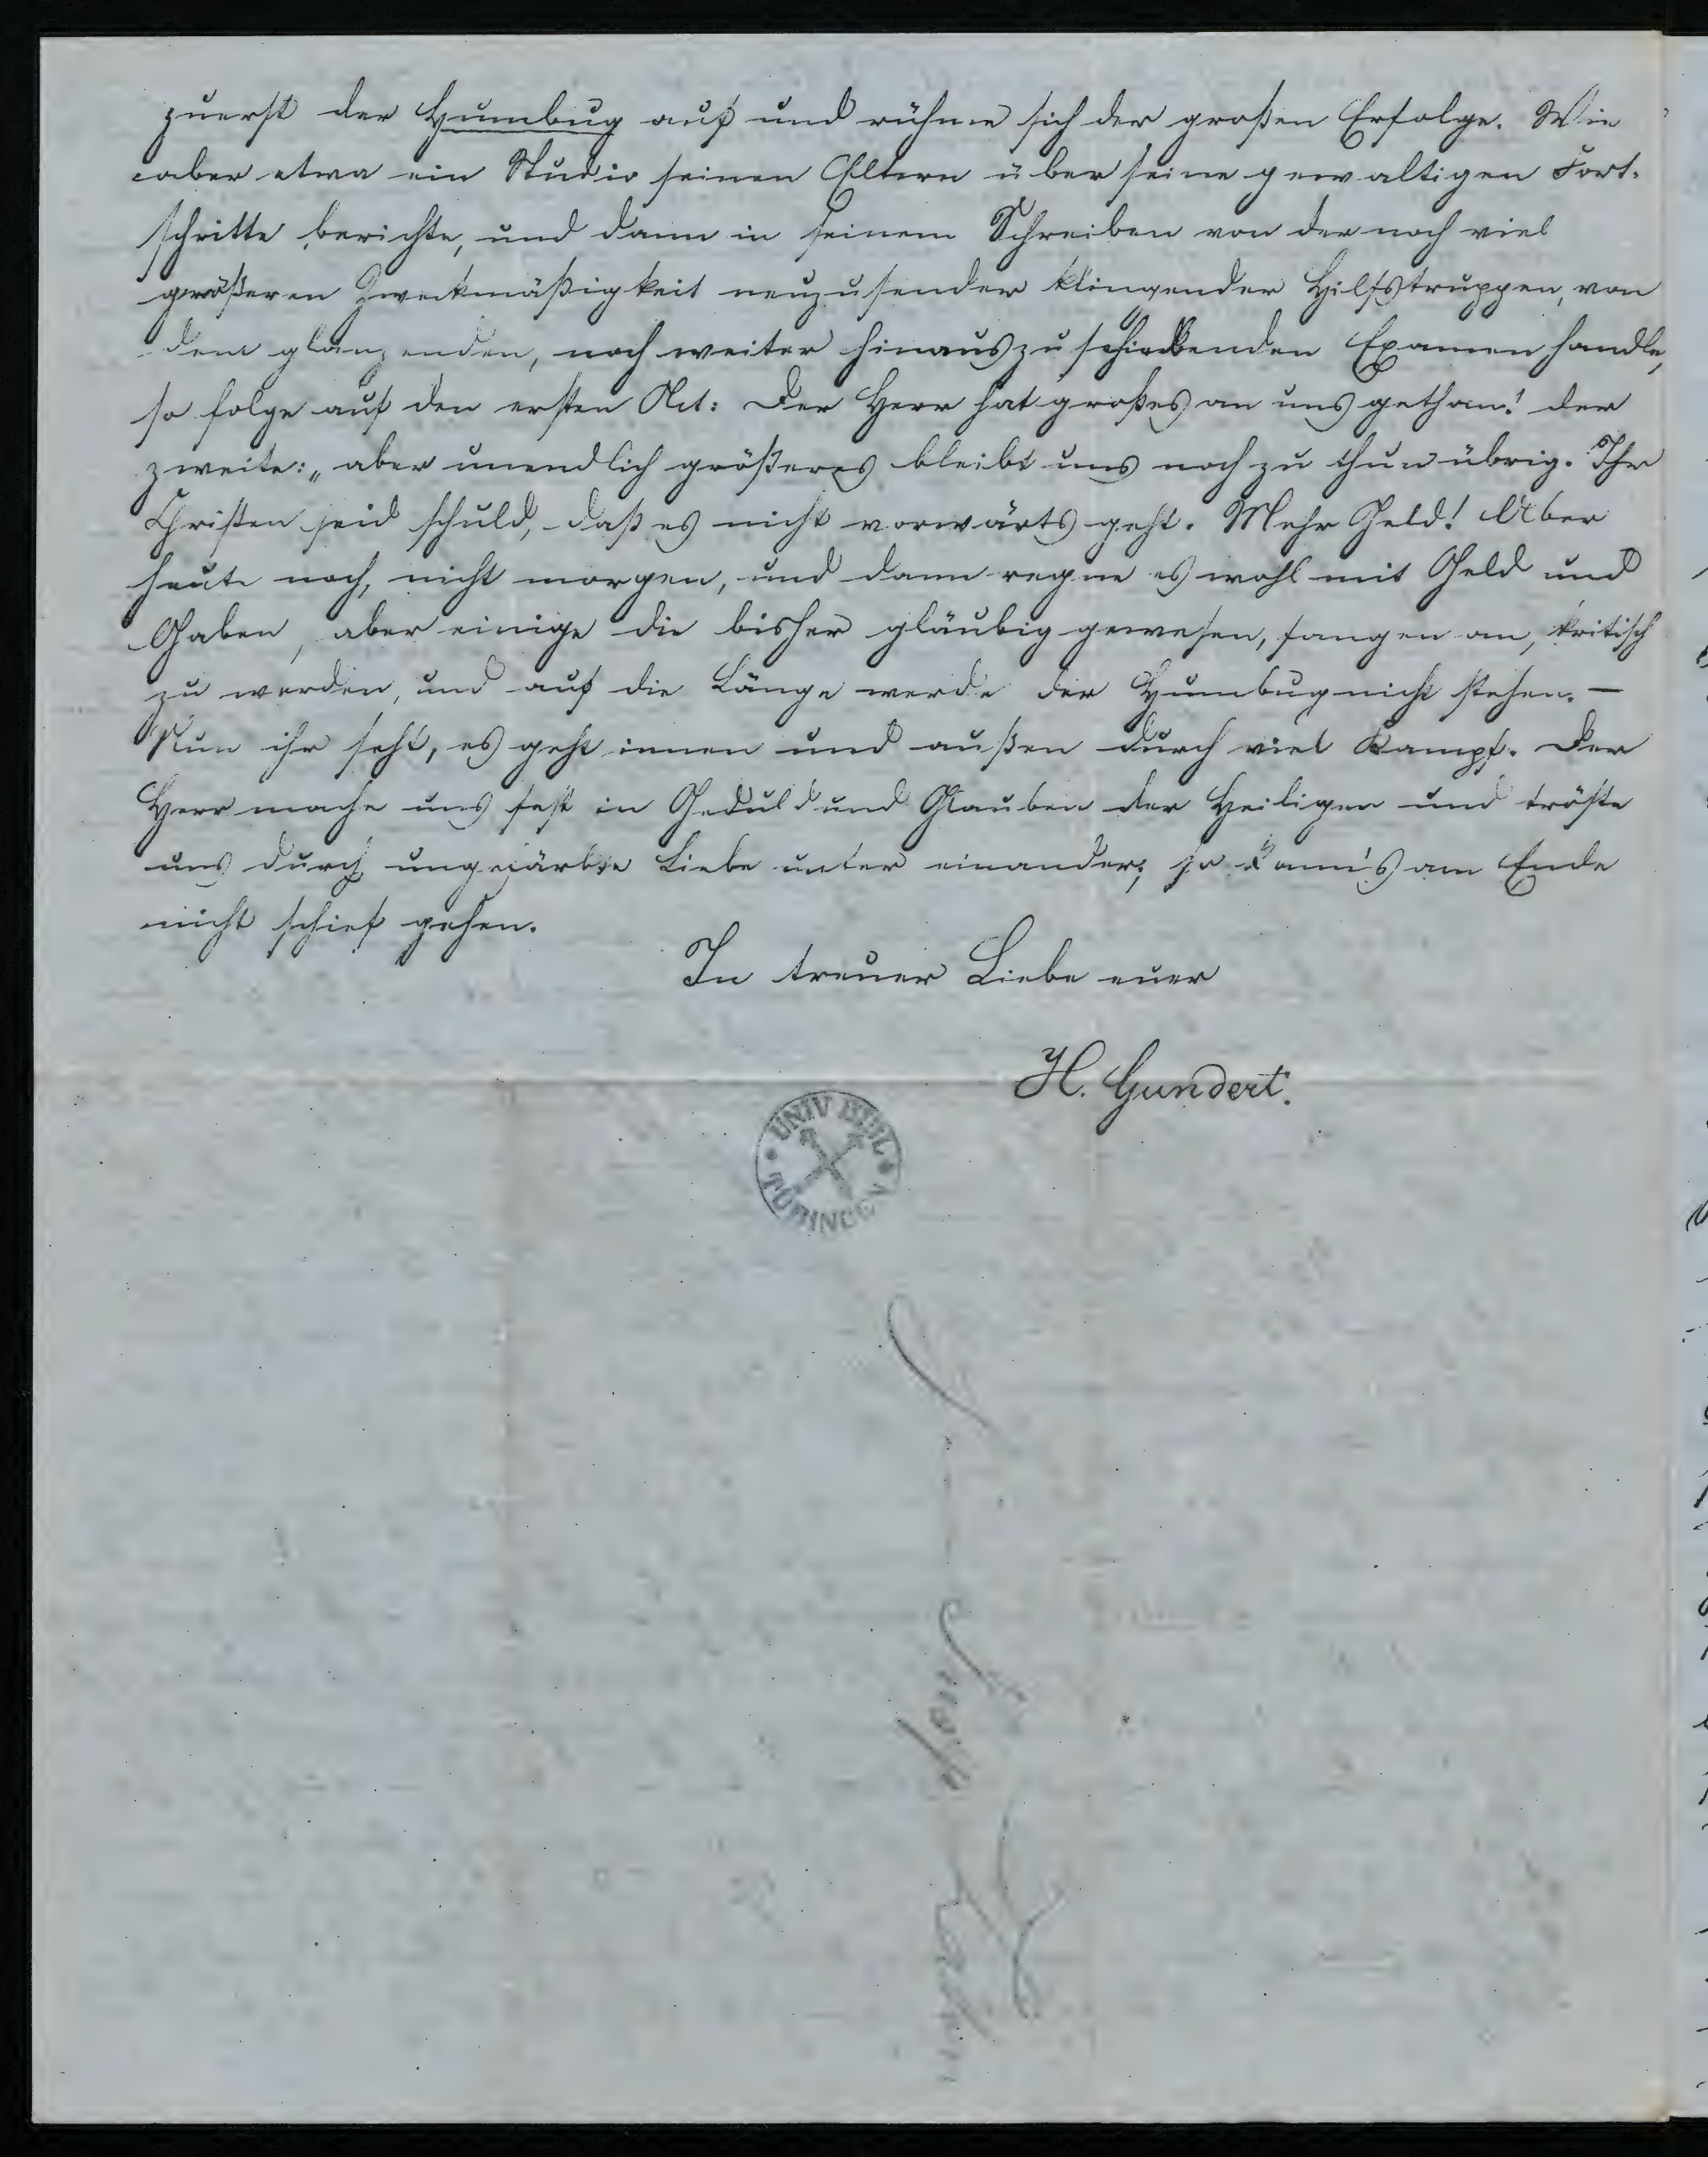 zuerst der Humbug auf und rühme sich der großen Erfolge. Wie
aber etwa ein Studio seinen Eltern über seine gewaltigen Fort-
schritte berichte, und dann in seinem Schreiben von der noch viel
größeren Zweckmäßigkeit neuzusender klingender Hilfstruppen, von
dem glänzenden, noch weiter hinauszuschiebenden Examen handle,
so folge auf den ersten Act: Der Herr hat großes an uns gethan! der
zweite: „aber unendlich größeres bleibt uns noch zu thun übrig. Ihr
Christen seid schuld, daß es nicht vorwärts geht. Mehr Geld! Aber
heute noch, nicht morgen, und dann regne es wohl mit Geld und
Gaben, aber einige die bisher gläubig gewesen, fangen an, kritisch
zu werden, und auf die Länge werde der Humbug nicht stehen. —
Nun ihr seht, es geht innen und außen durch viel Kampf. Der
Herr mache uns fest in Geduld und Glauben der Heiligen und tröste
uns durch ungefärbte Liebe unter einander; so kann's am Ende
nicht schief gehen.
In treuer Liebe euer
H. Gundert.
UNIV BIBL
TÜBINGEN